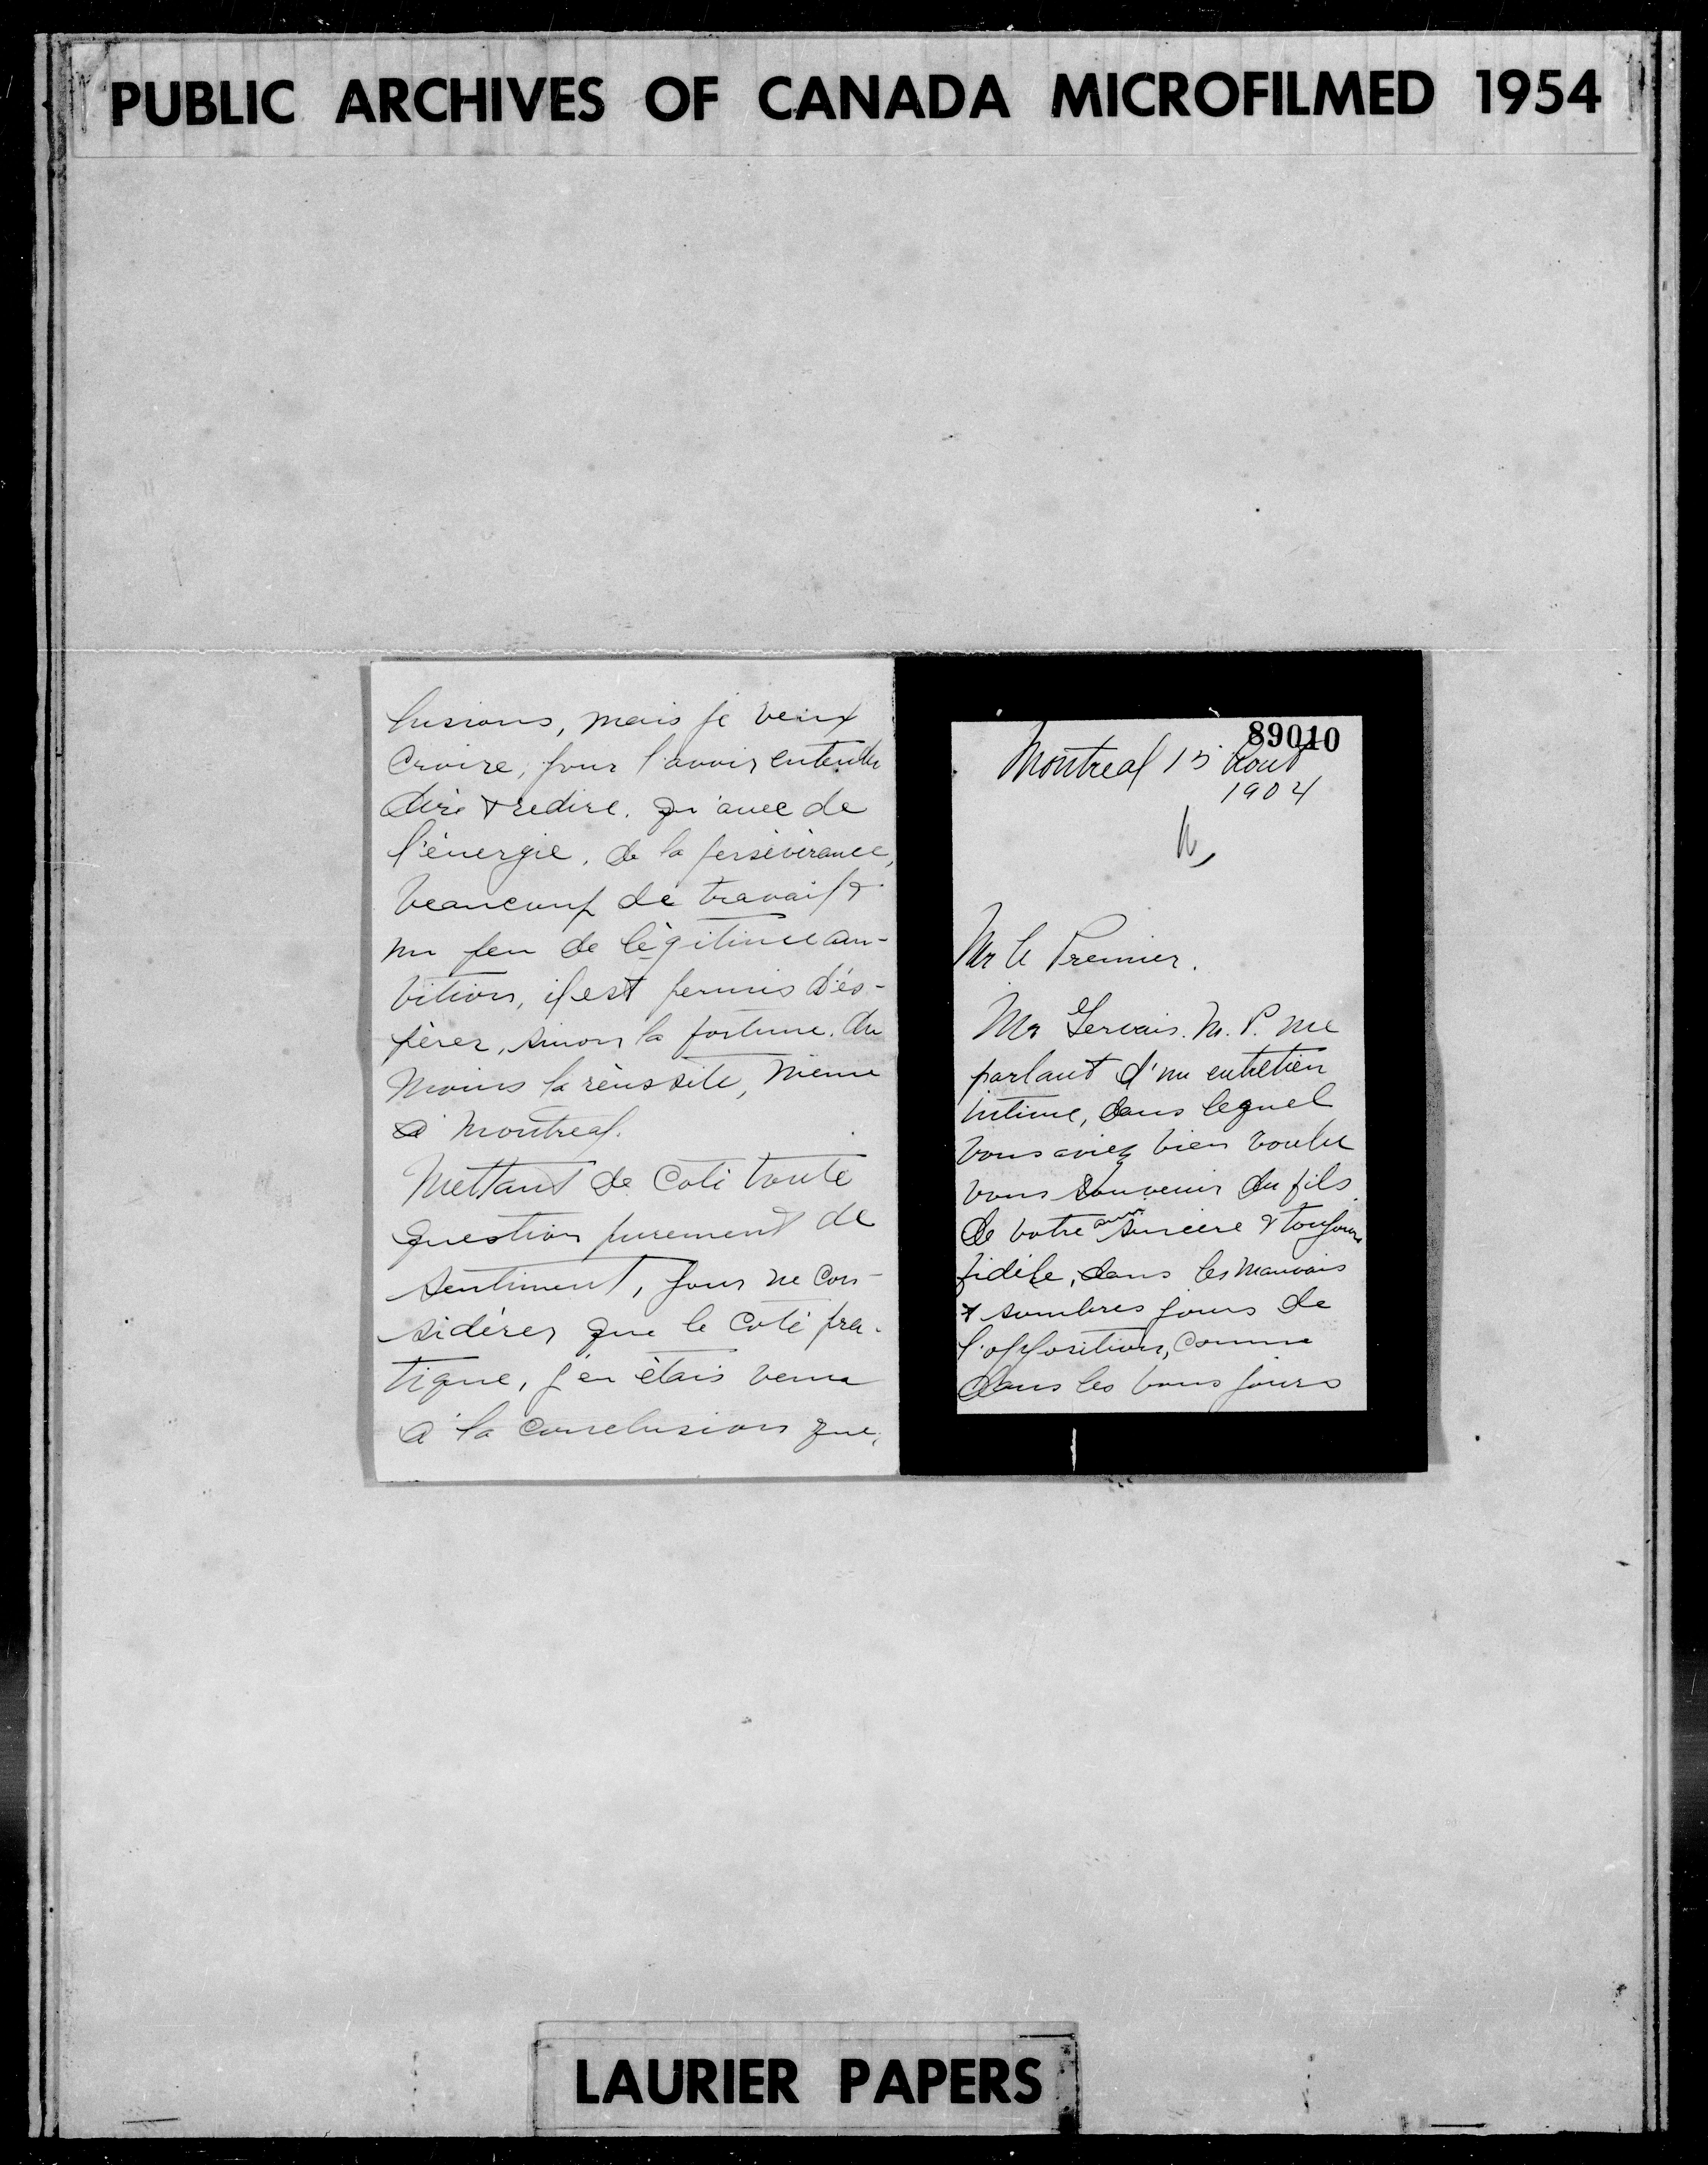 PUBLIC ARCHIVES OF CANADA MICROFILMED 1954
lusions, mais je veux
croire, pour l'avoir entendu
dire & redire, qu'avec de
l'énergie, de la persévérance,
beaucoup de travail &
un peu de légitime am-
bition, il est permis d'es-
pérer, sinon la fortune, du
moins la réussite, même
à Montreal.
Mettant de coté toute
question purement de
sentiment, pour ne con-
sidérer que le coté pra-
tique, j'en étais venu
à la conclusion que,
89010
Montreal 15 Aout
1904
Mr le Premier.
Mr Gervais. M. P. me
parlant d'un entretien
intime, dans lequel
vous aviez bien voulu
vous souvenir du fils
de votre ami sincere & toujours
fidèle, dans les mauvais
& sombres jours de
l'opposition, comme
dans les bons jours
LAURIER PAPERS